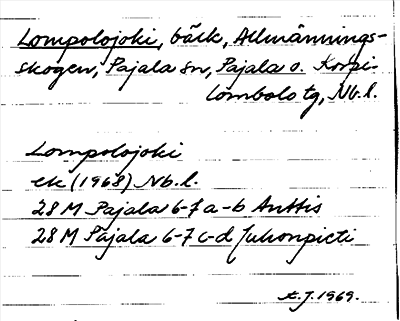 Lompolojoki, bäck, Allmännings-
skogen, Pajala sn, Pajala o. Korpi-
lombolo tg, Nb.l.
Lompolojoki
ek (1968) Nb.l.
28 M Pajala 6-7 a-b Anttis
28 M Pajala 6-7 c-d Juhonpieti
A.J. 1969.